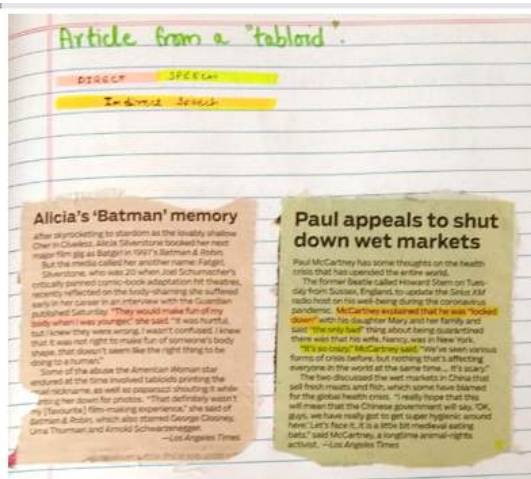 Article from a "tabloid".
DIRECT SPEECH
Indirect Speech
Alicia's 'Batman' memory
After skyrocketing to stardom as the lovably shallow
Cher in Clueless, Alicia Silverstone booked her next
major film gig as Batgirl in 1997's Batman & Robin.
But the media called her another name: Fatgirl.
Silverstone, who was 20 when Joel Schumacher's
critically panned comic-book adaptation hit theatres,
recently reflected on the body-shaming she suffered
early in her career in an interview with the Guardian
published Saturday. "They would make fun of my
body when I was younger," she said. "It was hurtful,
but I knew they were wrong. I wasn't confused. I knew
that it was not right to make fun of someone's body
shape, that doesn't seem like the right thing to be
doing to a human."
Some of the abuse the American Woman star
endured at the time involved tabloids printing the
cruel nickname, as well as paparazzi shouting it while
hunting her down for photos. "That definitely wasn't
my [favourite] film-making experience," she said of
Batman & Robin, which also starred George Clooney,
Uma Thurman and Arnold Schwarzenegger.
—Los Angeles Times
Paul appeals to shut
down wet markets
Paul McCartney has some thoughts on the health
crisis that has upended the entire world.
The former Beatle called Howard Stern on Tues-
day from Sussex, England, to update the Sirius XM
radio host on his well-being during the coronavirus
pandemic. McCartney explained that he was "locked
down" with his daughter Mary and her family and
said "the only bad" thing about being quarantined
there was that his wife, Nancy, was in New York.
"It's so crazy," McCartney said. "We've seen various
forms of crisis before, but nothing that's affecting
everyone in the world at the same time... It's scary."
The two discussed the wet markets in China that
sell fresh meats and fish, which some have blamed
for the global health crisis. "I really hope that this
will mean that the Chinese government will say, 'OK,
guys, we have really got to get super hygienic around
here.' Let's face it, it is a little bit medieval eating
bats," said McCartney, a longtime animal-rights
activist. —Los Angeles Times